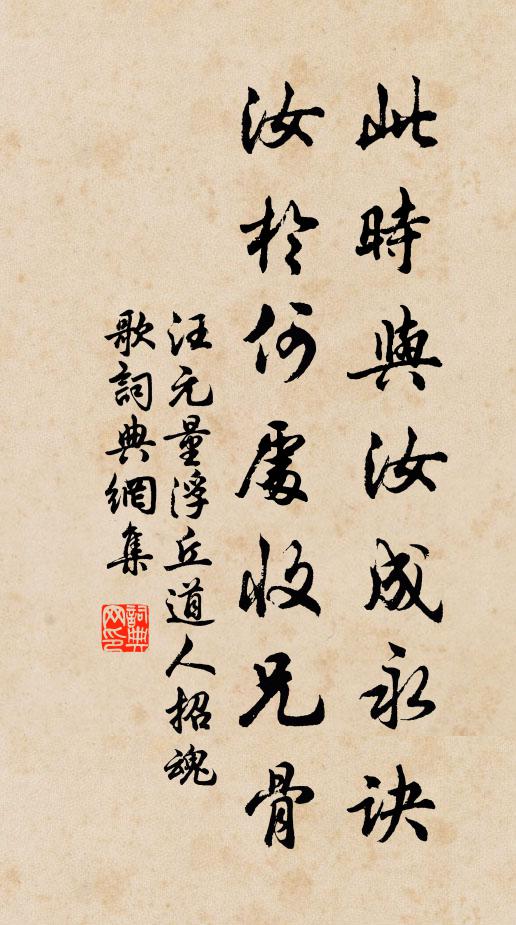 此時與汝成永訣
汝於何處收兄骨
汪元量浮丘道人招魂
歌詞典網集
詞典
网印